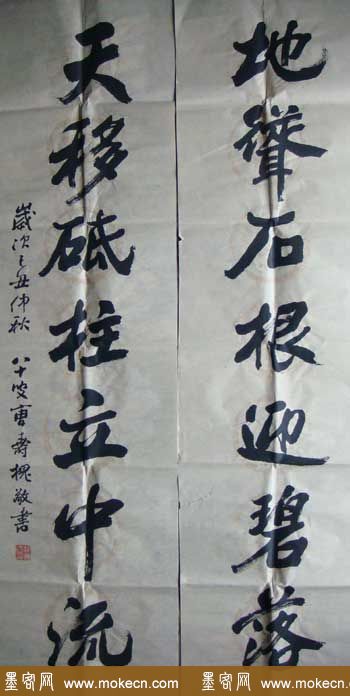 地聳石根迎碧落
天移砥柱立中流
歲次乙丑仲秋 八十叟曹壽槐敬書
墨客网 www.mokecn.com 墨客网 www.mokecn.com